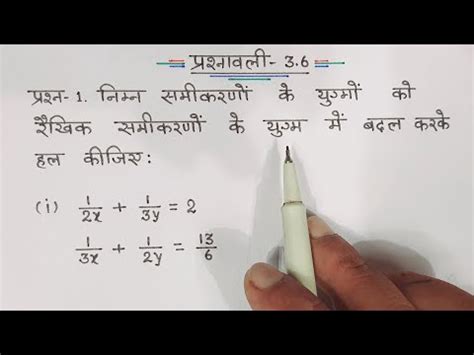 प्रश्नावली- 3.6
प्रश्न- 1. निम्न समीकरणों के युग्मों को
रैखिक समीकरणों के युग्म में बदल करके
हल कीजिए:
(i) 1/2x + 1/3y = 2
1/3x + 1/2y = 13/6